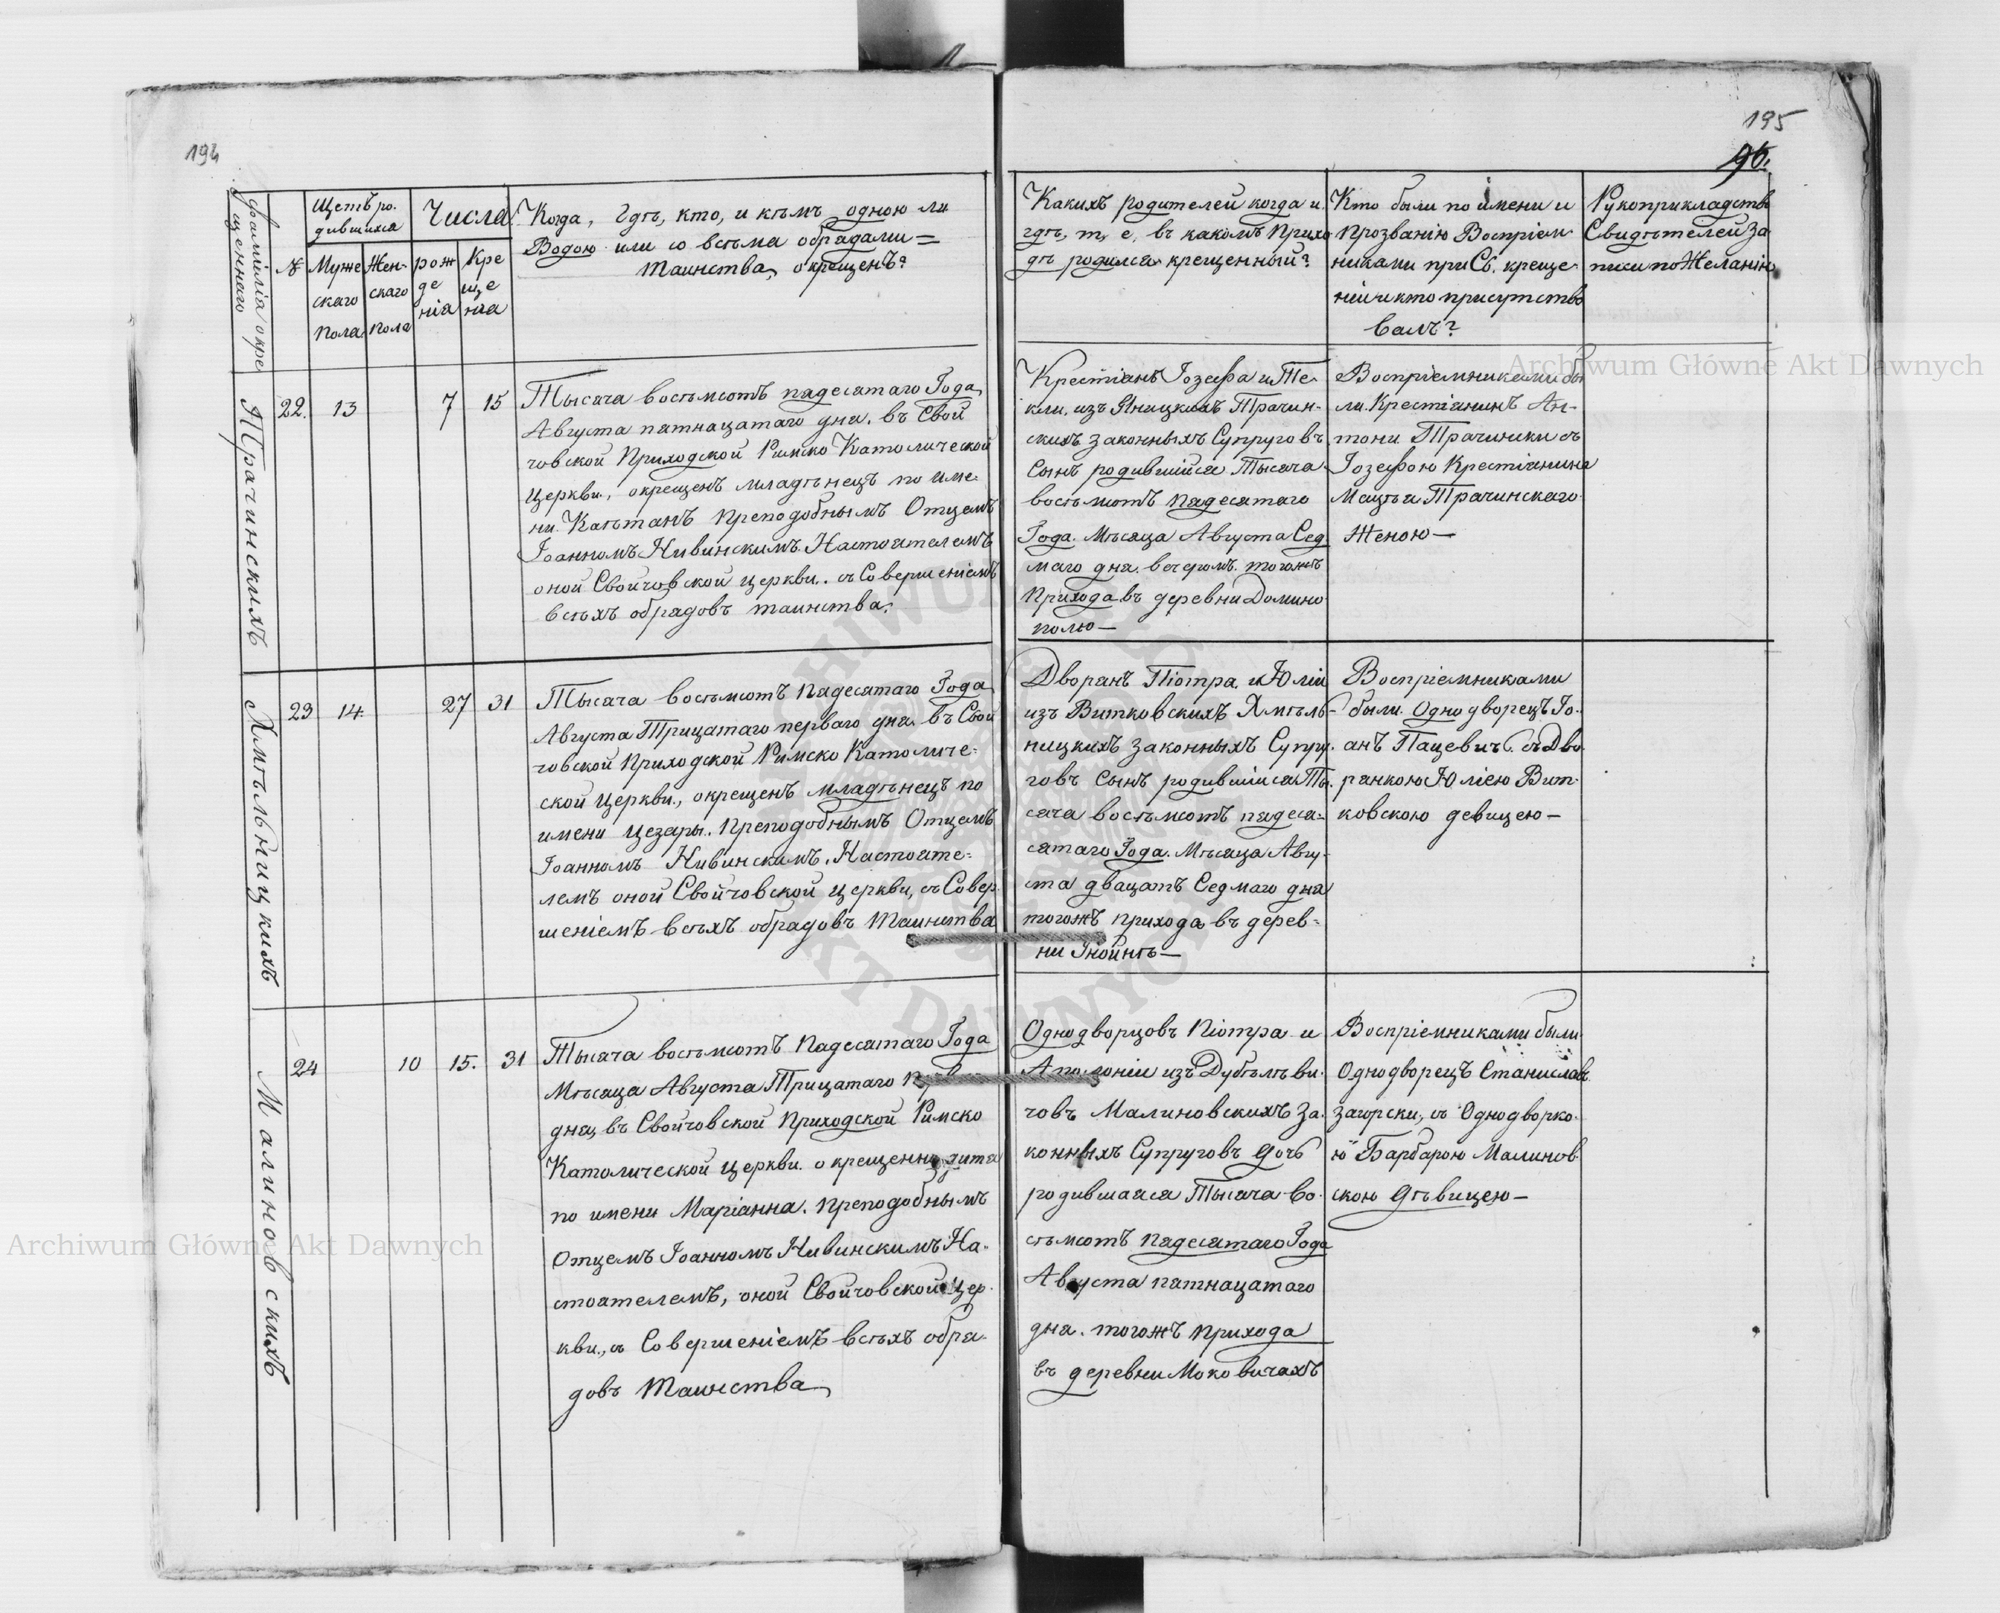 194
195
96.
Фамилія окре
щеннаго
№
Щетъ ро
дившихся
Муже
скаго
пола
Жен-
скаго
пола
Числа
рож
де
нія
Кре
ще
нія
Когда, гдѣ, кто, и кѣмъ одною ли
Водою или со всѣма обрядами =
Таинства, окрещенъ?
Какихъ родителей когда и
гдѣ, т, е, въ какомъ Прихо
дѣ родился крещенный?
Кто были по имени и
Прозванію Воспріем-
никами при Св. креще-
ніи и кто присутство
валъ?
Рукоприкладство
Свидѣтелей за
писи по Желанію
Трачинскихъ
22.
13
7
15
Тысяча восьмсотъ падесятаго Года
Августа патнацатаго дня. въ Свой
човской Приходской Римско Католической
Церкви, окрещенъ младѣнецъ по име-
ни Каѣтанъ Преподобнымъ Отцемъ
Іоанномъ Нивинскимъ Настоятелемъ
оной Свойчовской церкви. съ Совершеніемъ
всѣхъ обрядовъ таинства.
Крестіанъ Іозефа и Те-
кли изъ Яницкихъ Трачин-
скихъ законныхъ Супруговъ
Сынъ родившійся Тысяча
восьмсотъ падесятаго
Года. Мѣсяца Августа Сед
маго дня. вечеромъ. тогожъ
Прихода въ деревни Домино
полю —
Воспріемниками бы
ли Крестіанинъ Ан-
тони Трачински съ
Іозефою Крестіанина
Мацѣя Трачинскаго
Женою —
Хмѣльницкихъ
23
14
27
31
Тысяча восьмсотъ Падесятаго Года
Августа Трицатаго перваго дня въ Свой
човской Приходской Римско Католиче-
ской Церкви, окрещенъ младѣнецъ по
имени Цезары. Преподобнымъ Отцемъ
Іоанномъ Нивинскимъ. Настояте-
лемъ оной Свойчовской Церкви, съ Совер
шеніемъ всѣхъ обрядовъ Таинства
Дворанъ Піотра и Юліи
изъ Витковскихъ Хмѣль-
ницкихъ законныхъ Супру-
говъ Сынъ родившійся Ты-
сяча восьмсотъ падеся-
сятаго Года. Мѣсяца Авгу-
ста двацать Седмаго дня
тогожъ прихода въ дерев-
ни Гнойнѣ —
Воспріемниками
были Однодворецъ Іо-
анъ Пацевичъ съ Дво
ранкою Юліею Вит-
ковскою девицею —
Малиновскихъ
24
10
15.
31
Тысяча восьмсотъ Падесятаго Года
Мѣсяца Августа Трицатаго
дня, въ Свойчовской Приходской Римско
Католической Церкви. окрещенно дитя
по имени Маріанна. Преподобнымъ
Отцемъ Іоанномъ Нивинскимъ На-
стоятелемъ, оной Свойчовской Цер-
кви, съ Совершеніемъ всѣхъ обря-
довъ Таинства
Однодворцовъ Піотра и
Аполоніи изъ Дубѣлѣви-
човъ Малиновскихъ за-
конныхъ Супруговъ дочь
родившаяся Тысяча во-
сьмсотъ падесятаго Года
Августа патнацатаго
дня. тогожъ прихода
въ деревни Моковичахъ
Воспріемниками были
Однодворецъ Станиславъ
Загорски, съ Однодворко-
ю Барбарою Малинов-
скою Дѣвицею —
Archiwum Główne Akt Dawnych
Archiwum Główne Akt Dawnych